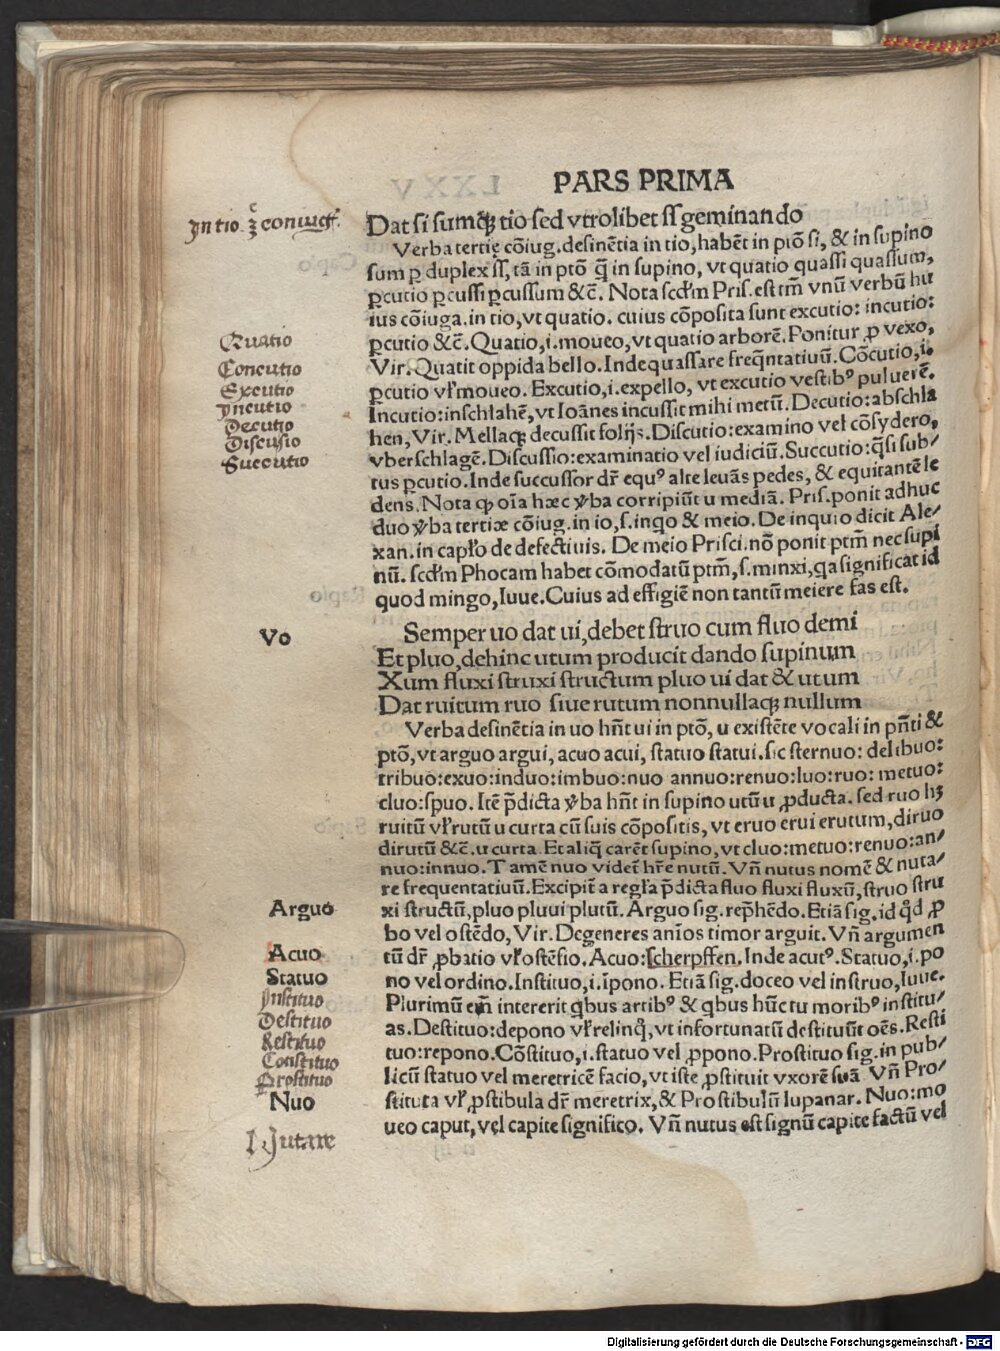 PARS PRIMA
In tio 3ͨ coniuct.
Dat si sumq̃ꝫ tio sed vtrolibet ss geminando
Verba tertię cōiug. desinētia in tio, habēt in ptō si, & in supino
sum ꝑ duplex ss, tā in ptō q̄ in supino, vt quatio quassi quassum,
ꝑcutio ꝑcussi ꝑcussum &c̄. Nota scdm̄ Pris. est tm̄ vnū verbū hu
ius cōiuga. in tio, vt quatio. cuius cōposita sunt excutio: incutio:
ꝑcutio &c̄. Quatio, i. moueo, vt quatio arborē. Ponitur ꝓ vexo,
Vir. Quatit oppida bello. Inde quassare freq̄ntatiuū. Cōcutio, i.
ꝑcutio vl̵ moueo. Excutio, i. expello, vt excutio vestibꝰ puluerē.
Incutio: inschlahē, vt Ioānes incussit mihi metū. Decutio: abschla
hen, Vir. Mellaqꝫ decussit folijs. Discutio: examino vel cōsydero,
vberschlagē. Discussio: examinatio vel iudiciū. Succutio: q̄si sub/
tus ꝑcutio. Inde succussor dr̄ equꝰ alte leuās pedes, & equitantē le
dens. Nota ꝙ oīa hæc v̄ba corripiūt u mediā. Pris. ponit adhuc
duo v̄ba tertiæ cōiug. in io, s. inqo & meio. De inquio dicit Ale/
xan. in capl̵o de defectiuis. De meio Prisci. nō ponit ptm̄ nec supi
nū. scdm̄ Phocam habet cōmodatū ptm̄, s. minxi, qa significat id
quod mingo, Iuue. Cuius ad effigiē non tantū meiere fas est.
Quatio
Concutio
Excutio
Yncutio
Decutio
Discusio
Succutio
Vo
Semper uo dat ui, debet struo cum fluo demi
Et pluo, dehinc utum producit dando supinum
Xum fluxi struxi structum pluo ui dat & utum
Dat ruitum ruo siue rutum nonnullaqꝫ nullum
Verba desinētia in uo hn̄t ui in ptō, u existēte vocali in pn̄ti &
ptō, vt arguo argui, acuo acui, statuo statui. sic sternuo: delibuo:
tribuo: exuo: induo: imbuo: nuo annuo: renuo: luo: ruo: metuo:
cluo: spuo. Itē p̄dicta v̄ba hn̄t in supino utū u ꝓducta. sed ruo hꝫ
ruitū vl̵ rutū u curta cū suis cōpositis, vt eruo erui erutum, diruo
dirutū &c̄. u curta. Et aliq̄ carēt supino, vt cluo: metuo: renuo: an/
nuo: innuo. Tamē nuo videt̄ hr̄e nutū. Vn̄ nutus nomē & nuta/
re frequentatiuū. Excipit̄ a regl̵a p̄dicta fluo fluxi fluxū, struo stru
xi structū, pluo pluui plutū. Arguo sig. rep̄hēdo. Etiā sig. id qd̄ ꝓ
bo vel ostēdo, Vir. Degeneres anīos timor arguit. Vn̄ argumen
tū dr̄ ꝓbatio vl̵ ostēsio. Acuo: scherpffen. Inde acutꝰ. Statuo, i. po
no vel ordino. Instituo, i. īpono. Etiā sig. doceo vel instruo, Iuue.
Plurimū em̄ intererit qbus artibꝰ & qbus hūc tu moribꝰ institu/
as. Destituo: depono vl̵ relinq̄, vt infortunatū destituūt oēs. Resti
tuo: repono. Cōstituo, i. statuo vel ꝓpono. Prostituo sig. in pub/
licū statuo vel meretricē facio, vt iste ꝓstituit vxorē suā Vn̄ Pro/
stituta vl̵ ꝓstibula dr̄ meretrix, & Prostibulū lupanar. Nuo: mo
ueo caput, vel capite significo. Vn̄ nutus est signū capite factū vel
Arguo
Acuo
Statuo
Ynstituo
Destituo
Restituo
Constituo
Prostituo
Nuo
Nutare
Digitalisierung gefördert durch die Deutsche Forschungsgemeinschaft - DFG